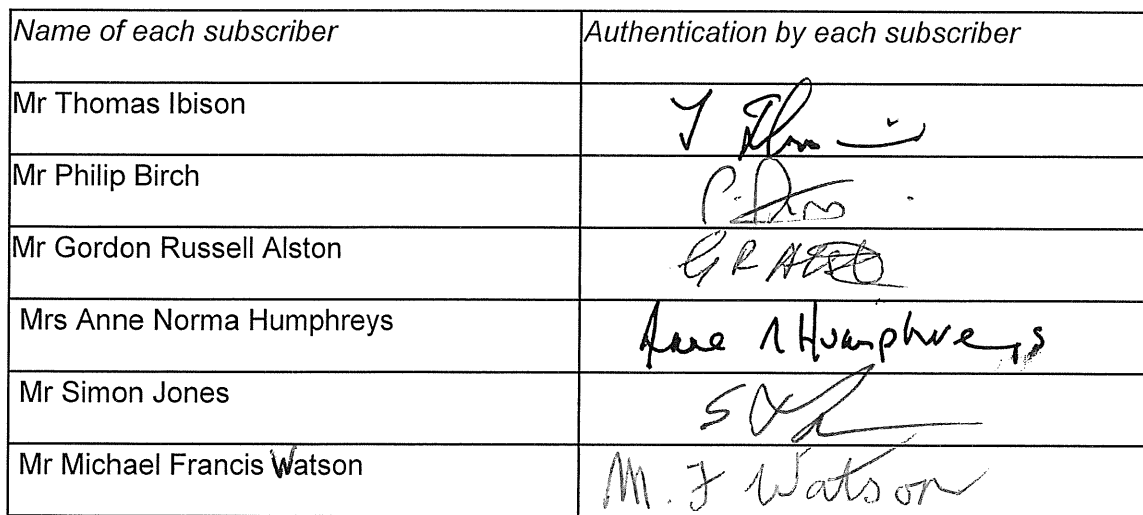 Name of each subscriber Authentication by each subscriber
Mr Thomas Ibison T
Mr Philip Birch P.
Mr Gordon Russell Alston G R
Mrs Anne Norma Humphreys Anne N Humphreys
Mr Simon Jones S
Mr Michael Francis Watson M. F Watson